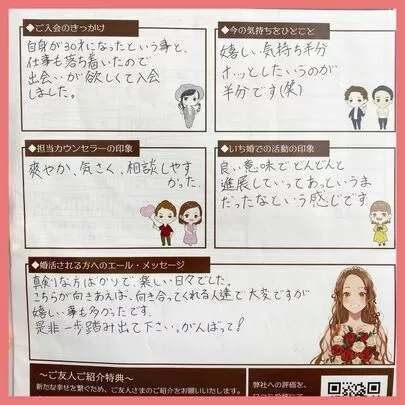 ◆ご入会のきっかけ
自身が30才になったという事と、
仕事も落ち着いたので
出会いが欲しくて入会
しました。
◆今の気持ちをひとこと
嬉しい気持ち半分
ホッとしたいうのが
半分です(笑)
◆担当カウンセラーの印象
爽やか、気さく、相談しやす
かった
◆いち婚での活動の印象
良い意味でどんどんと
進展していってあっというま
だったなという感じです
◆婚活される方へのエール・メッセージ
真剣な方ばかりで、楽しい日々でした。
こちらが向きあえば、向き合ってくれる人達で大変ですが
嬉しい事も多かったです.
是非一歩踏み出て下さい。がんばって!
～ご友人ご紹介特典～
新たな幸せを繋ぐため、ご友人さまのご紹介をお願いいたします。
弊社への評価を、